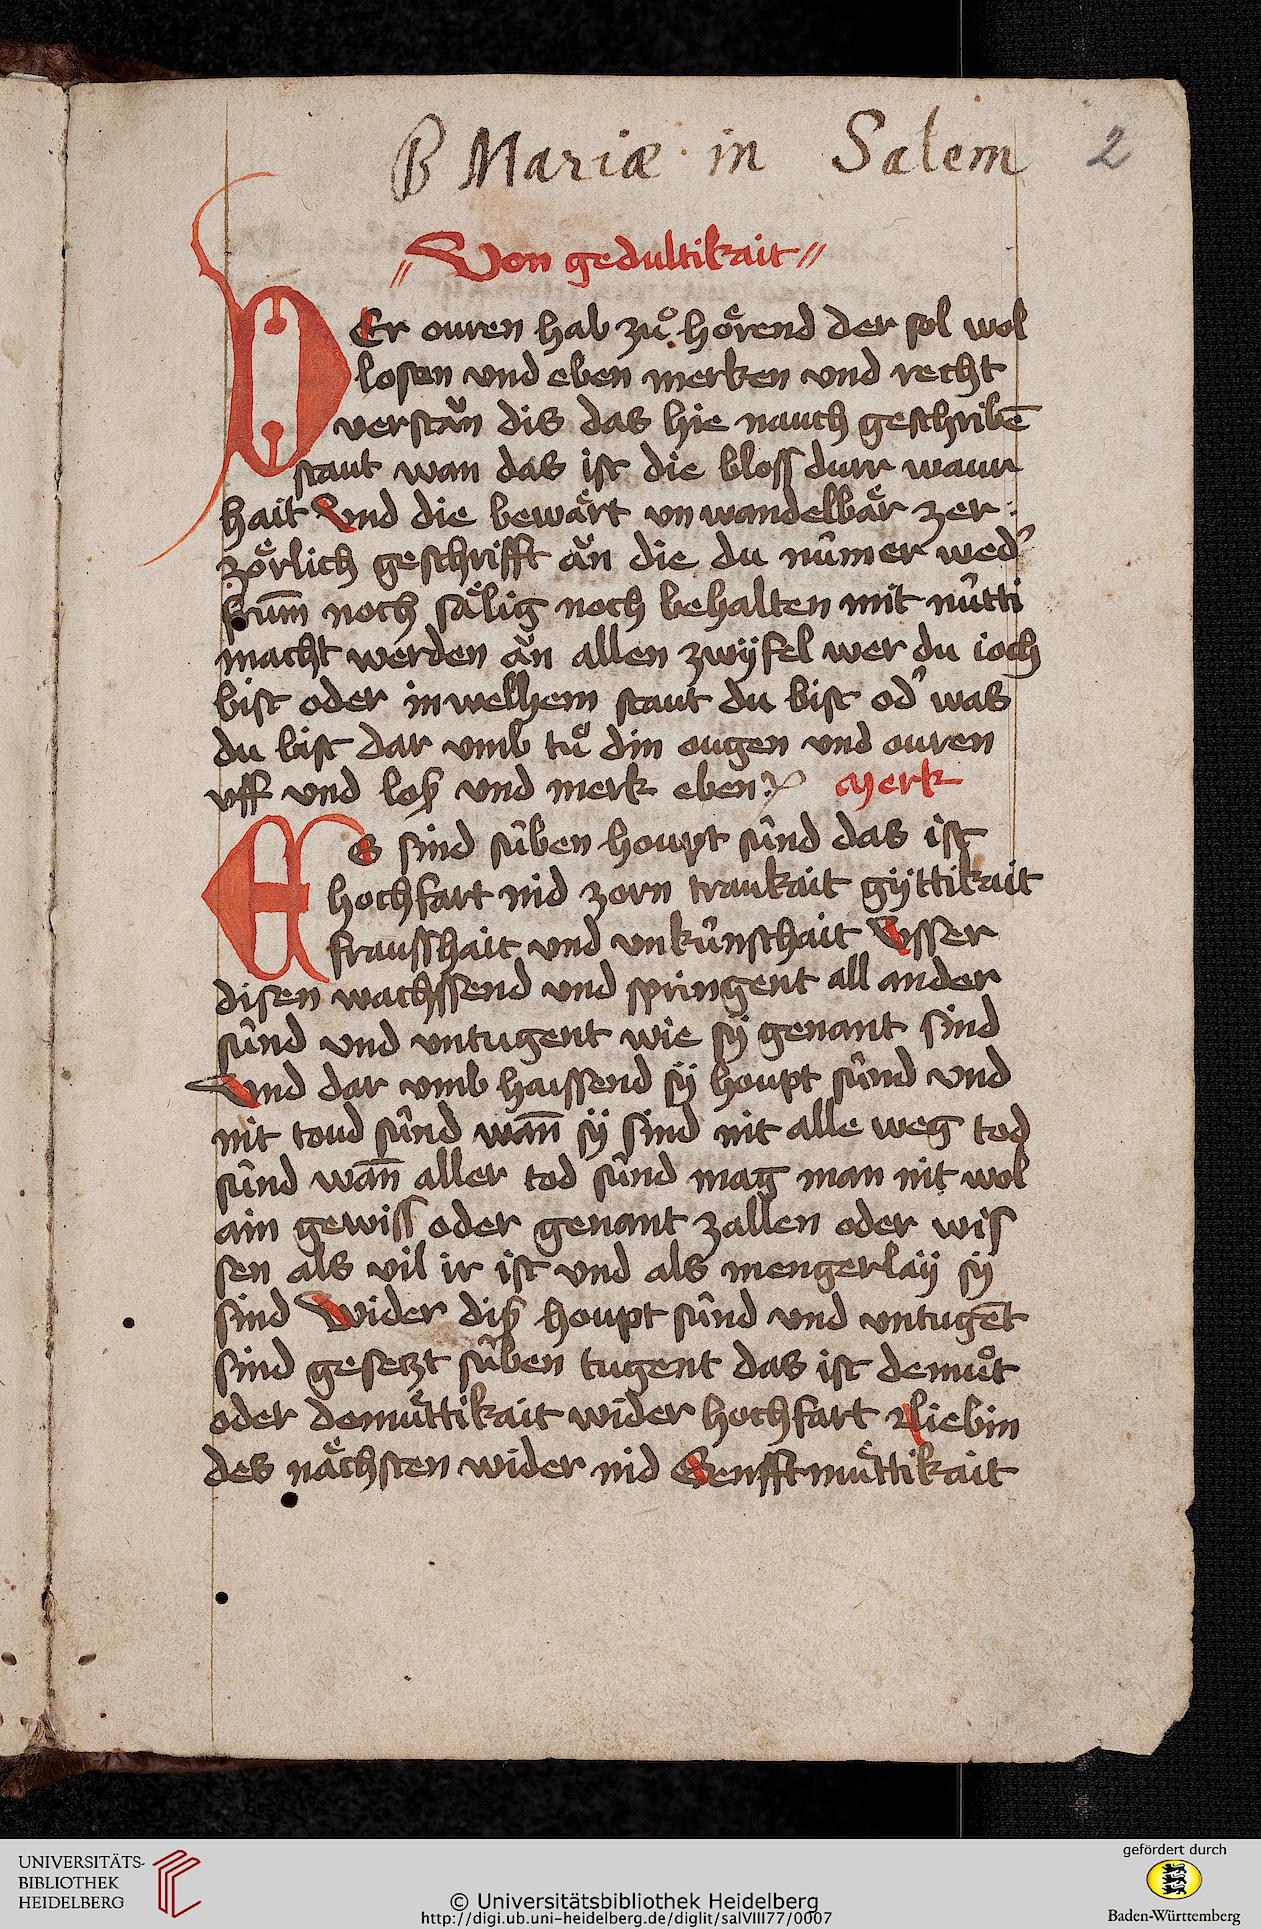 B Mariæ in Salem
2
Von gedultikait
DEr ouren hab zuͦ hoͤrend der sol wol
losen vnd eben merken vnd recht
verstaͧn dis das hie nauch geschribē
staut wan das ist die bloss durr waur
hait Vnd die bewaͤrt vn wandelbaͤr zer
zoͤrlich geschrifft aͧn die du nûmer wed'
frum̄ noch saͤlig noch behalten mit nûtti
macht werden aͧn allen zwÿfel wer du ioch
bist oder in welhem staut du bist od' was
du bist dar vmb tuͦ din ougen vnd ouren
vff vnd loß vnd merk eben Merk
ES sind sûben houpt sûnd das ist
hochfart nid zorn traukait gÿttikait
frausshait vnd vnkûnschait Vsser
disen wachssend vnd springent all ander
sûnd vnd vntugent wie sÿ genant sind
Vnd dar vmb haissend sÿ houpt sûnd vnd
nit toud sûnd wan̄ sÿ sind nit alle weg tod
sûnd wan̄ aller tod sûnd mag man nit wol
ain gewiss oder genant zallen oder wis
sen als vil ir ist vnd als mengerlaÿ sÿ
sind Wider diß houpt sûnd vnd vntugēt
sind gesetzt sûben tugent das ist demuͦt
oder demuͤttikait wider hochfart Liebin
des naͤchsten wider nid Senfftmuͤttikait
UNIVERSITÄTS-
BIBLIOTHEK
HEIDELBERG
© Universitätsbibliothek Heidelberg
http://digi.ub.uni-heidelberg.de/diglit/salVIII77/0007
gefördert durch
Baden-Württemberg